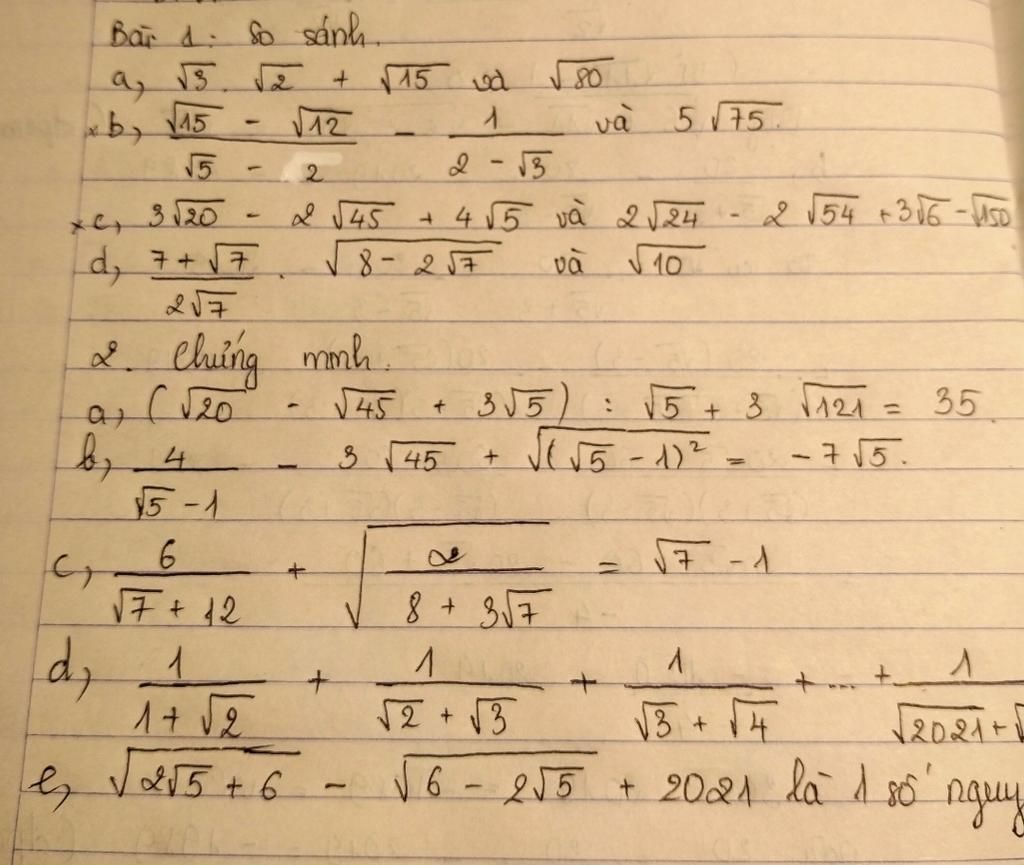 Bài 1: So sánh.
a, √3 . √2 + √15 và √80
*b, (√15 - √12)/(√5 - 2) - 1/(2 - √3) và 5√75.
*c, 3√20 - 2√45 + 4√5 và 2√24 - 2√54 + 3√6 - √150
d, (7 + √7)/(2√7) . √(8 - 2√7) và √10
2. Chứng minh.
a, (√20 - √45 + 3√5) : √5 + 3√121 = 35
b, 4/(√5 - 1) - 3√45 + √((√5 - 1)²) = -7√5.
c, 6/(√7 + 12) + √(2/(8 + 3√7)) = √7 - 1
d, 1/(1 + √2) + 1/(√2 + √3) + 1/(√3 + √4) + ... + 1/(√2021 + √
e, √(2√5 + 6) - √(6 - 2√5) + 2021 là 1 số nguy